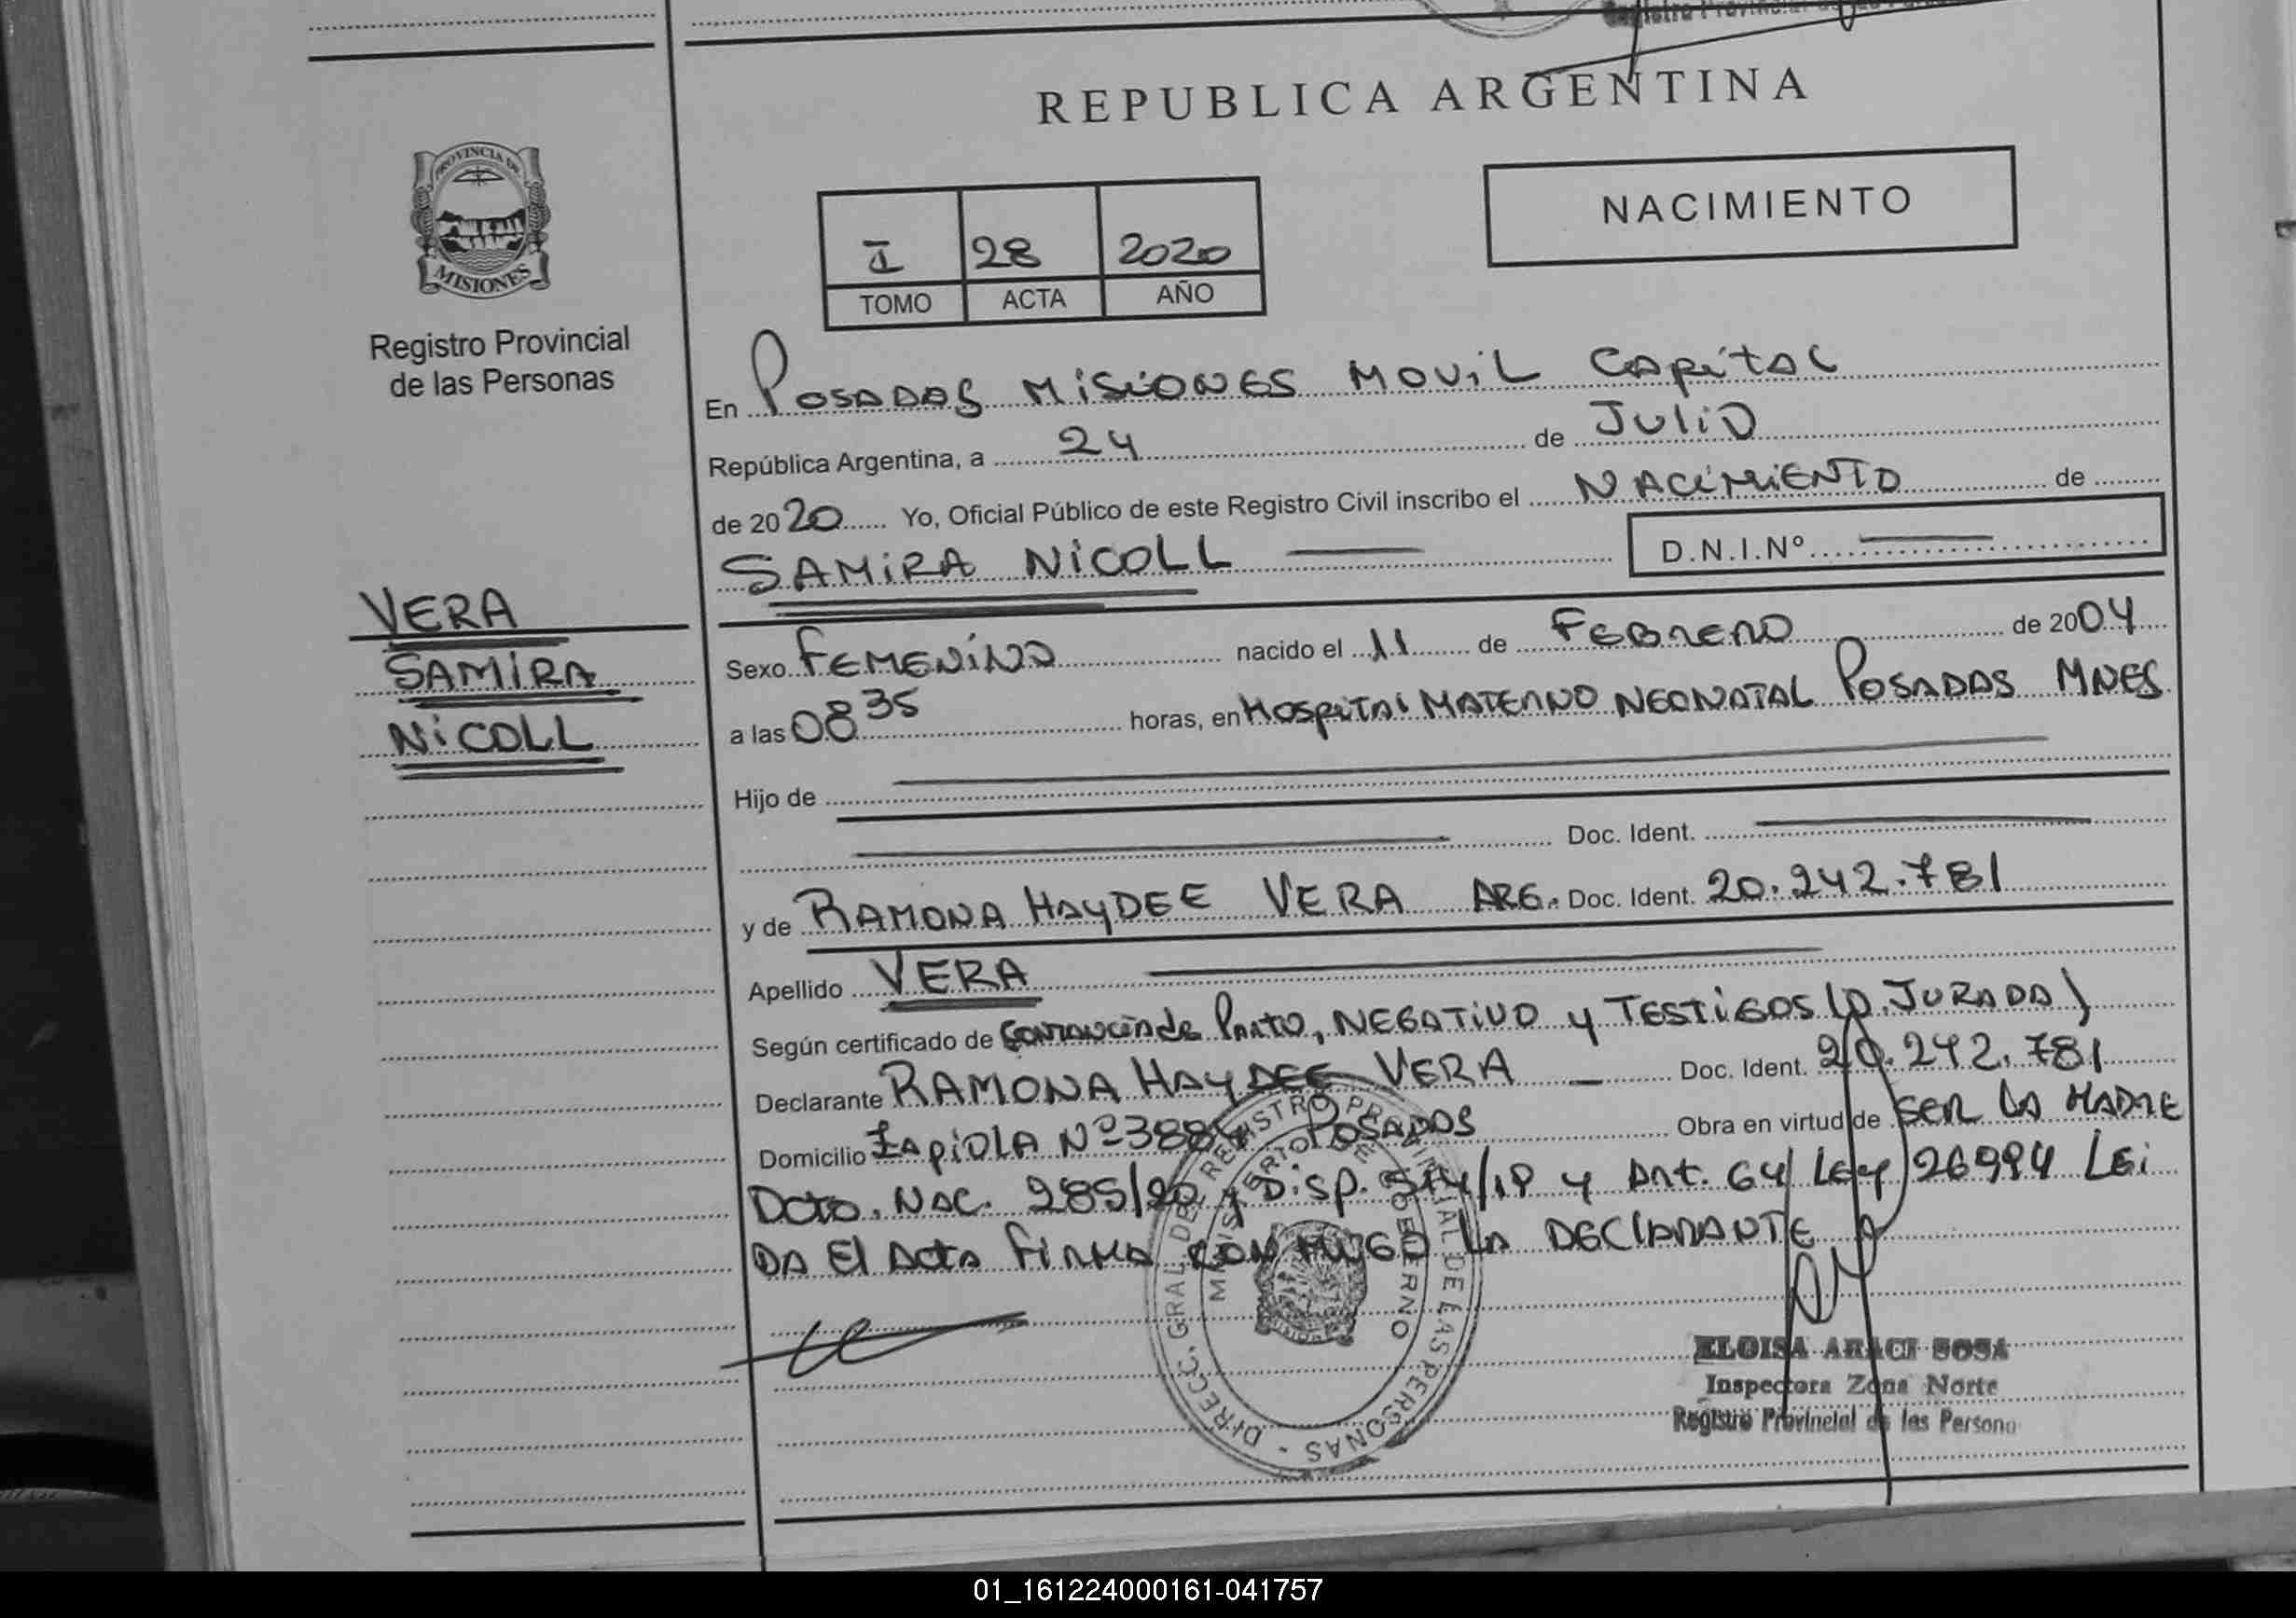 REPUBLICA ARGENTINA
NACIMIENTO
I 28 2020
TOMO ACTA AÑO
PROVINCIA DE
MISIONES
Registro Provincial
de las Personas
En Posadas Misiones Movil Capital
República Argentina, a 24 de Julio
de 2020 Yo, Oficial Público de este Registro Civil inscribo el Nacimiento de
SAMIRA NICOLL D.N.I.Nº
VERA
SAMIRA
NICOLL
Sexo Femenino nacido el 11 de Febrero de 2004
a las 08 35 horas, en Hospital Materno Neonatal Posadas Mnes
Hijo de
Doc. Ident.
y de Ramona Haydee Vera ARG. Doc. Ident. 20.242.781
Apellido VERA
Según certificado de de Parto, Negativo y Testigos (D. Jurada)
Declarante Ramona Haydee Vera Doc. Ident. 20.242.781
Domicilio Zapiola Nº 3884 Posadas Obra en virtud de Ser la Madre
Dcto. Nac. 285/20 y Disp. y Art. 64 Ley 26994 Lei
da el acta firma conmigo la declarante
DIRECC. GRAL. DEL REGISTRO PROVINCIAL DE LAS PERSONAS
MINISTERIO DE GOBIERNO
ELOISA ARACI SOSA
Inspectora Zona Norte
Registro Provincial de las Persona
01_161224000161-041757